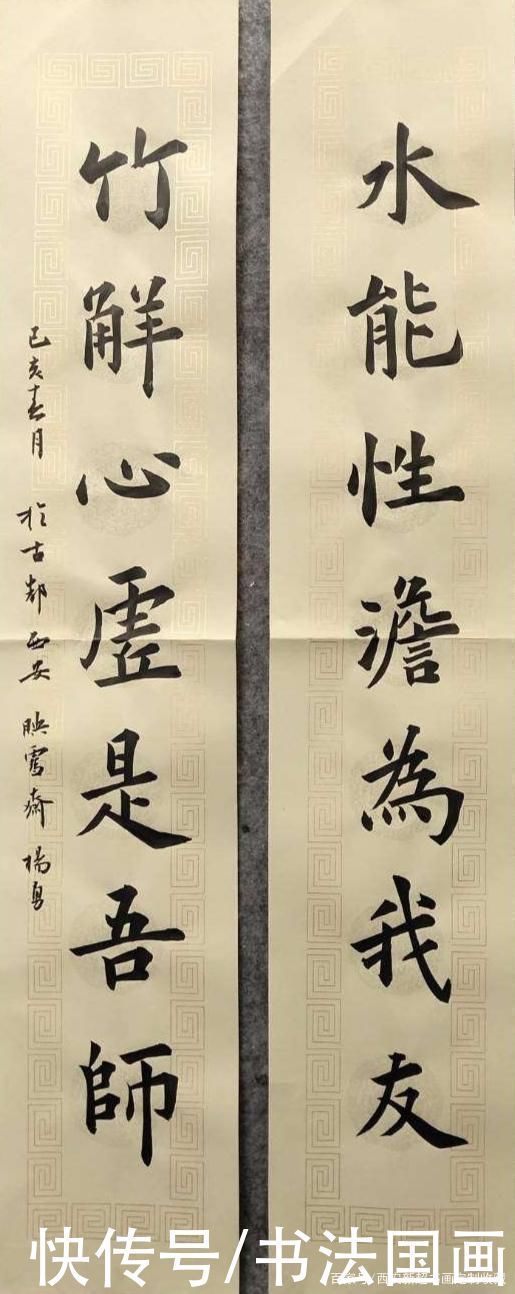 水能性澹為我友
竹解心虛是吾師
己亥春月
於古都西安映雪斋楊勇
快传号/书法国画